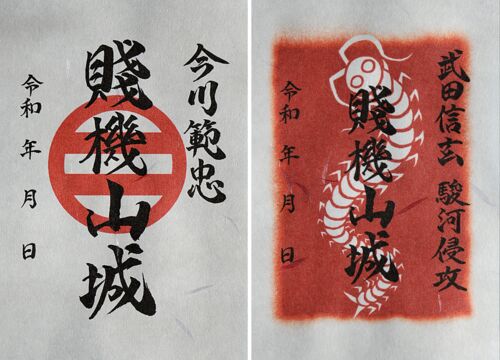 今川範忠
賤機山城
令和 年 月 日
武田信玄 駿河侵攻
賤機山城
令和 年 月 日